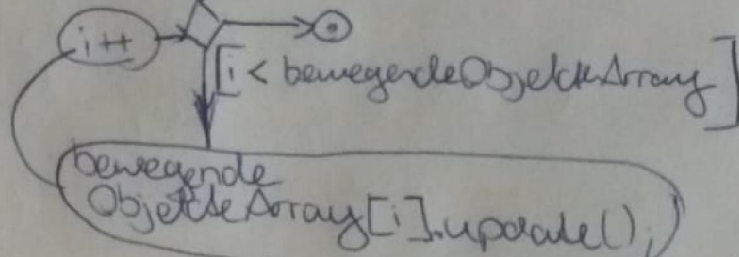 i++
[i < bewegendeObjekteArray]
bewegende
ObjekteArray[i].update();